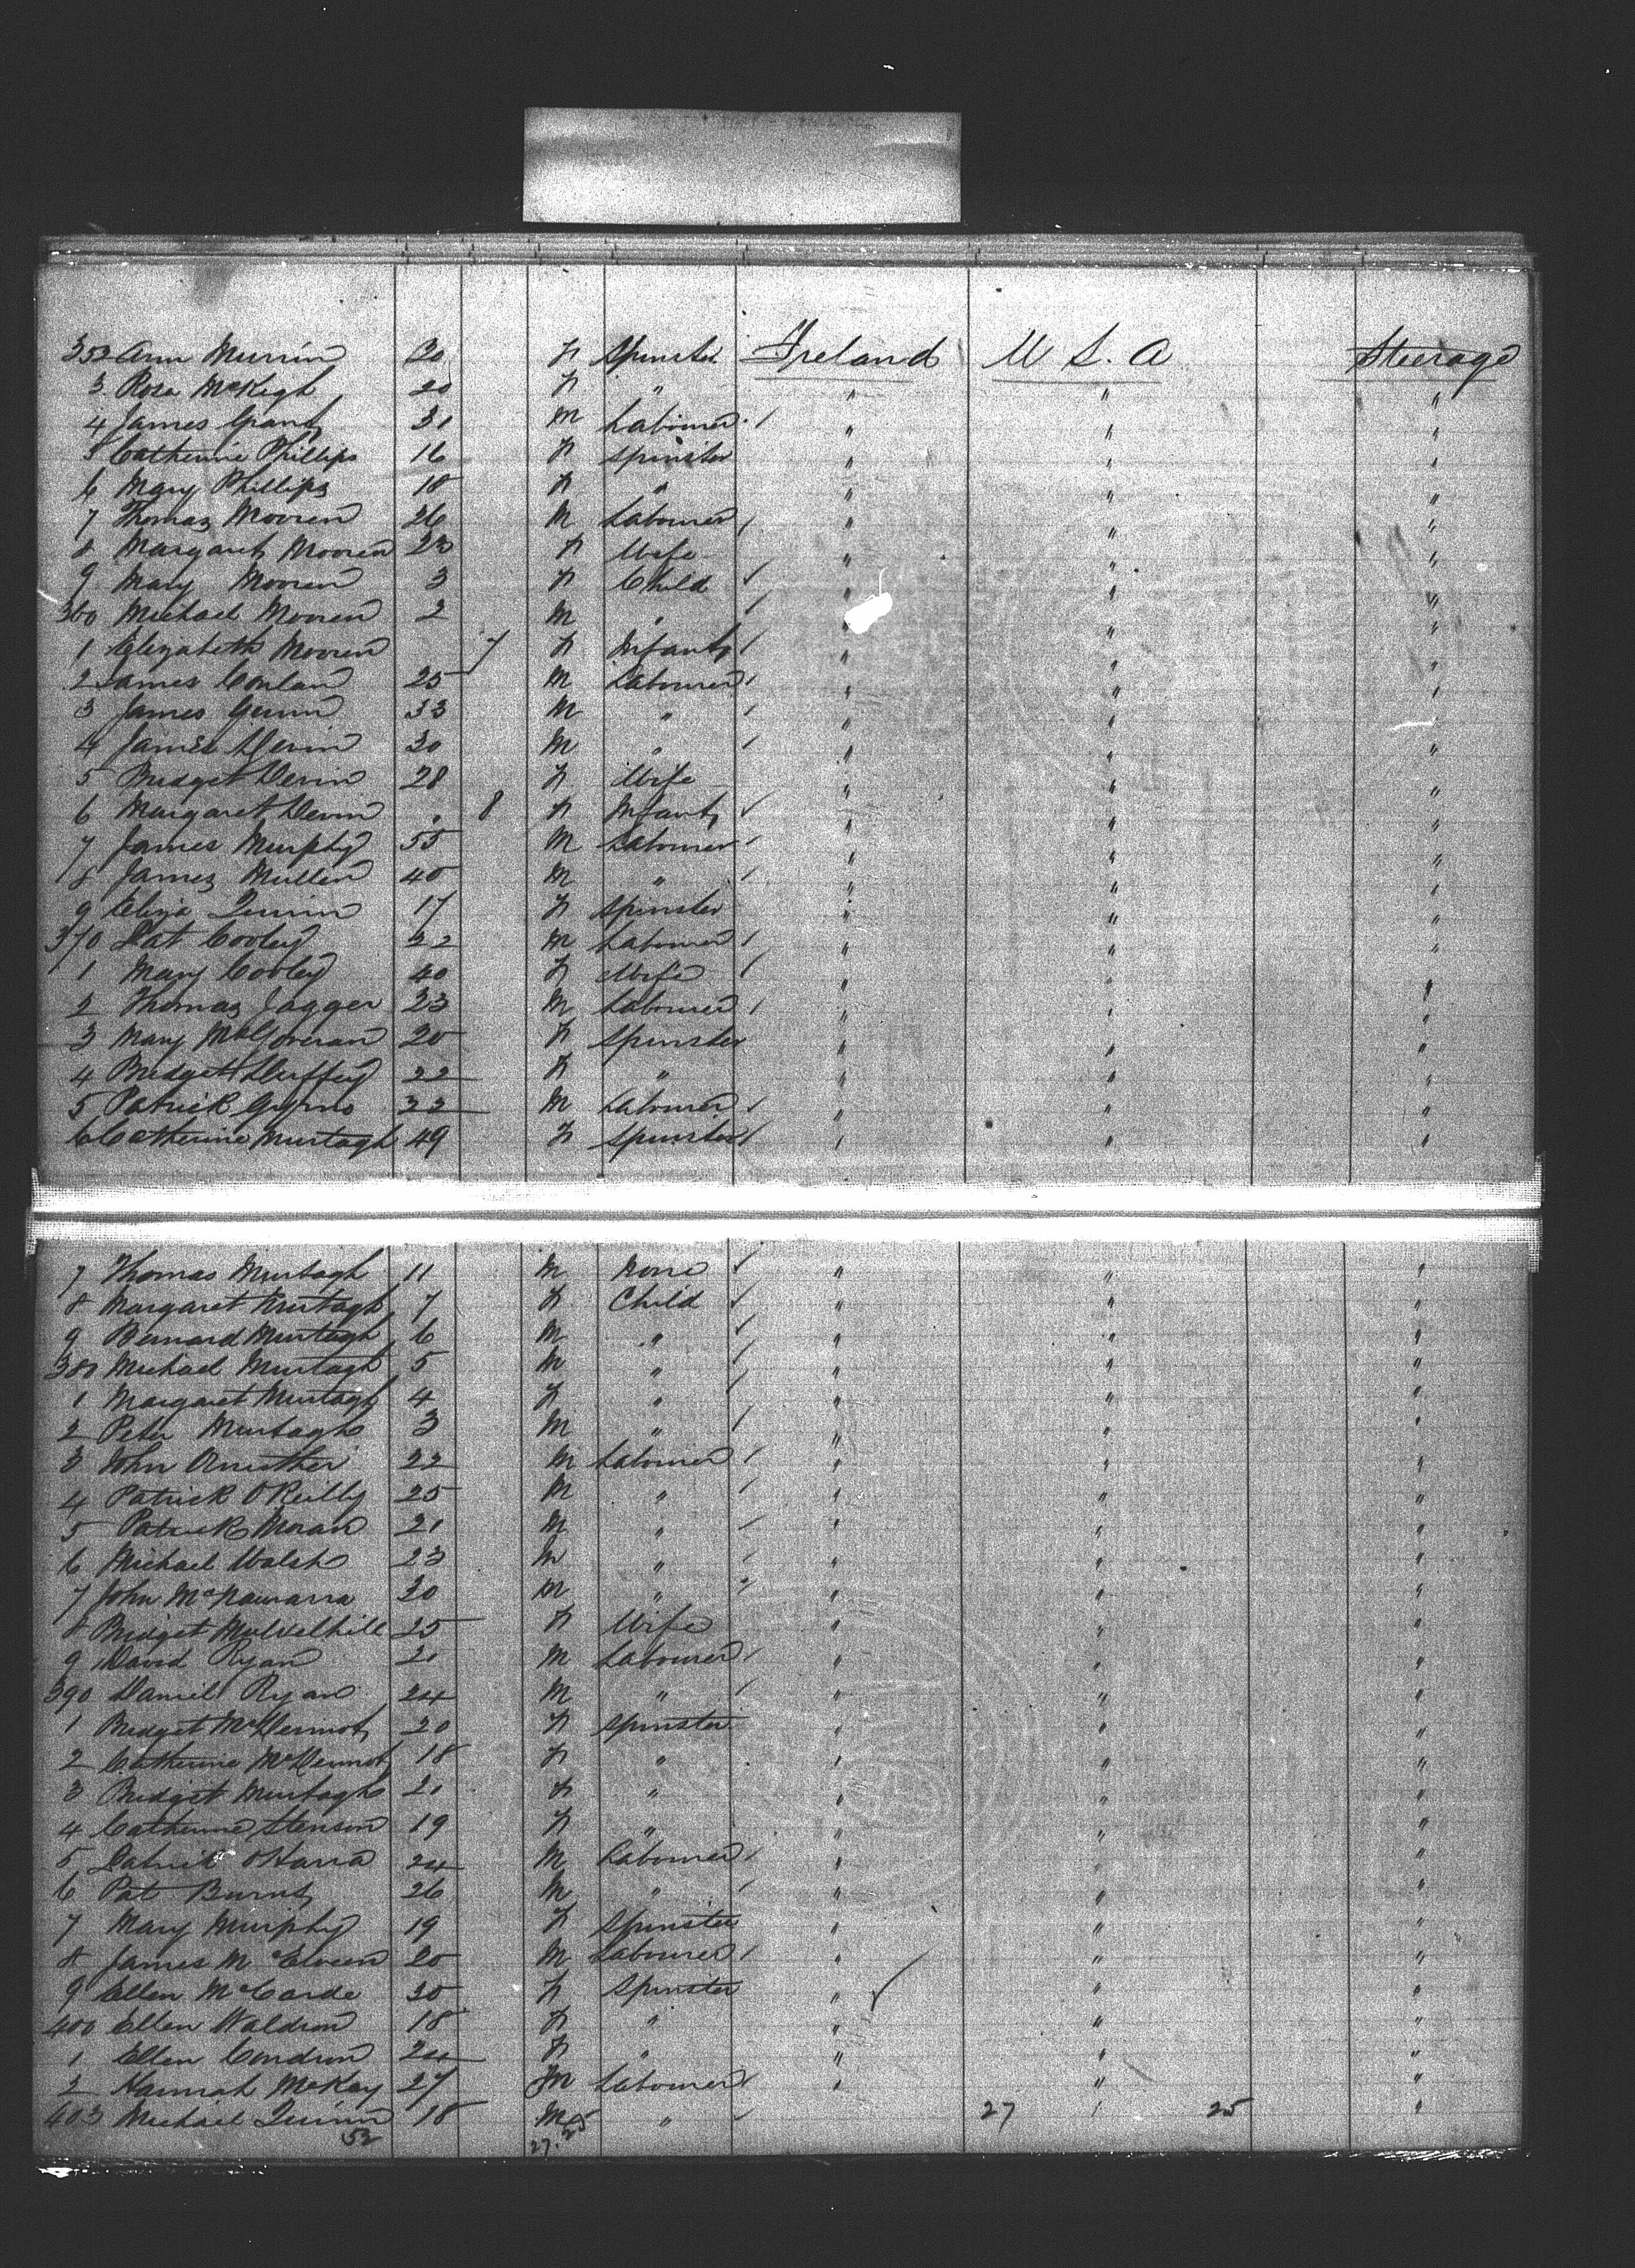 352 Ann Murrin 20 F Spinster Ireland U S. A Steerage
3 Rosa McKegh 20 F " " " "
4 James Grant 31 M Labourer " " "
5 Catherine Phillips 16 F Spinster " " "
6 Mary Phillips 18 F " " " "
7 Thomas Mooren 26 M Labourer " " "
8 Margaret Mooren 23 F Wife " " "
9 Mary Mooren 3 F Child " " "
360 Michael Mooren 2 M " " " "
1 Elizabeth Mooren 7 F Infant " " "
2 James Conlan 25 M Labourer " " "
3 James Gunn 33 M " " "
4 James Devin 30 M " " " "
5 Bridget Devin 28 F Wife " " "
6 Margaret Devin " 8 F Infant " " "
7 James Murphy 55 M Labourer " " "
8 James Mullen 40 M " " " "
9 Eliza Quinn 17 F Spinster " " "
370 Pat Cooley 32 M Labourer " " "
1 Mary Cooley 40 F Wife " " "
2 Thomas Jagger 23 M Labourer " " "
3 Mary McGoveran 20 F Spinster " " "
4 Bridget Duffey 22 F " " " "
5 Patrick Gyrns 32 M Labourer " " "
6 Catherine Murtagh 49 F Spinster " " "
7 Thomas Murtagh 11 M None " " "
8 Margaret Murtagh 7 F Child " " "
9 Bernard Murtagh 6 M " " " "
380 Michael Murtagh 5 M " " " "
1 Margaret Murtagh 4 F " " " "
2 Peter Murtagh 3 M " " " "
3 John 22 M Labourer " " "
4 Patrick OReilly 25 M " " " "
5 Patrick Moran 21 M " " " "
6 Michael Walsh 23 M " " " "
7 John McNamarra 20 M " " " "
8 Bridget Mulvelhill 25 F Wife " " "
9 David Ryan 21 M Labourer " " "
390 Daniel Ryan 24 M " " " "
1 Bridget McDermot 20 F Spinster " " "
2 Catherine McDermot 18 F " " " "
3 Bridget Murtagh 21 F " " " "
4 Catherine Stenson 19 F " " " "
5 Patrick OHarra 24 M Labourer " " "
6 Pat Burns 26 M " " " "
7 Mary Murphy 19 F Spinster " " "
8 James McElveen 20 M Labourer " " "
9 Ellen McCarde 30 F Spinster " " "
400 Ellen Waldron 18 F " " " "
1 Ellen Condron 24 F " " " "
2 Hannah McKay 27 M Labourer " " "
403 Michael Quinn 18 M " 27 25 "
52 27. 25